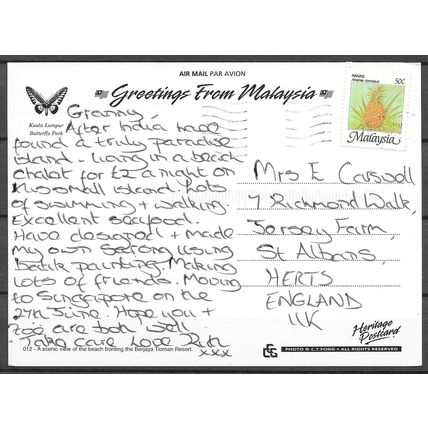 AIR MAIL PAR AVION
Greetings From Malaysia
Kuala Lumpur
Butterfly Park
NANAS
Ananas comosus
50¢
Malaysia
Granny,
After India, have
found a truly paradise
island - living in a beach
chalet for £2 a night on
this small island. Lots
of swimming + walking.
Excellent seafood.
Have designed + made
my own sarong using
batik painting. Making
lots of friends. Moving
to Singapore on the
27th June. Hope you +
are both well
Take care Love Ruth
xxx
Mrs E Carswell
7 Richmond Walk,
Jersey Farm,
St Albans,
HERTS
ENGLAND
UK
012 - A scenic view of the beach fronting the Berjaya Tioman Resort.
PHOTO © C.T.FONG • ALL RIGHTS RESERVED
Heritage
Postcard